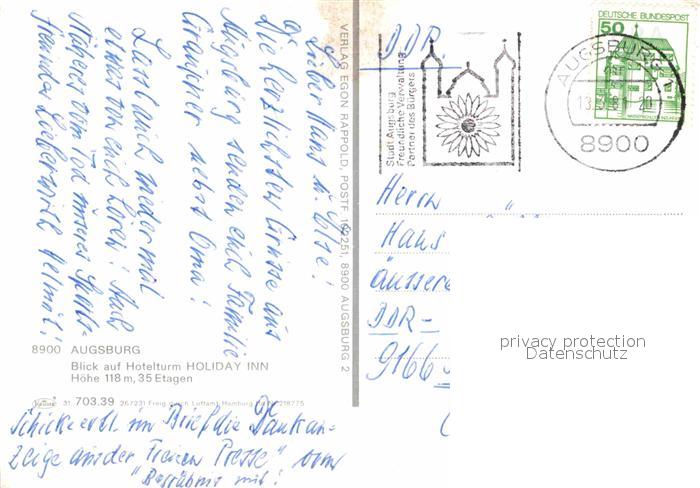 Lieber Hans u. Ilse!
Die herzlichsten Grüsse aus
Augsburg senden euch Familie
nebst Oma!
Lasst euch wieder mal
etwas von euch hören! Auch
Näheres vom Tod unseres Sports-
freundes Helmut!
8900 AUGSBURG
Blick auf Hotelturm HOLIDAY INN
Höhe 118 m, 35 Etagen
31 703.39 267231 Freig. durch Luftamt Hamburg
Schicke evtl. im Brief die Dankan-
zeige aus der "Freien Presse" vom
Begräbnis mit!
VERLAG EGON RAPPOLD, POSTF. 102251, 8900 AUGSBURG 2
DDR.
Stadt Augsburg
Freundliche Verwaltung
Partner des Bürgers
AUGSBURG
8900
DEUTSCHE BUNDESPOST
50
Herrn
Hans
äussere
DDR-
9166
privacy protection
Datenschutz